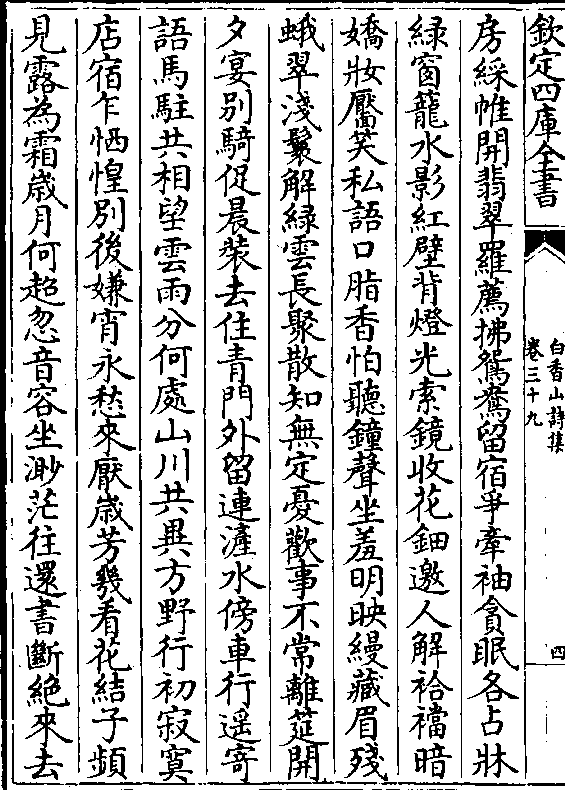 欽定四庫全書
白香山詩集
卷三十九
四
房綵帷開翡翠羅薦拂鴛鴦留宿爭牽袖貪眠各占牀
緑窗籠水影紅壁背燈光索鏡收花鈿邀人解袷襠暗
嬌妝靨笑私語口脂香怕聽鐘聲坐羞明映縵藏眉殘
蛾翠淺鬟解緑雲長聚散知無定憂歡事不常離筵開
夕宴别騎促晨裝去住青門外留連滻水傍車行遥寄
語馬駐共相望雲雨分何處山川共異方野行初寂寞
店宿乍恓惶别後嫌宵永愁來厭歲芳幾看花結子頻
見露為霜歲月何超忽音容坐渺茫往還書斷絶來去